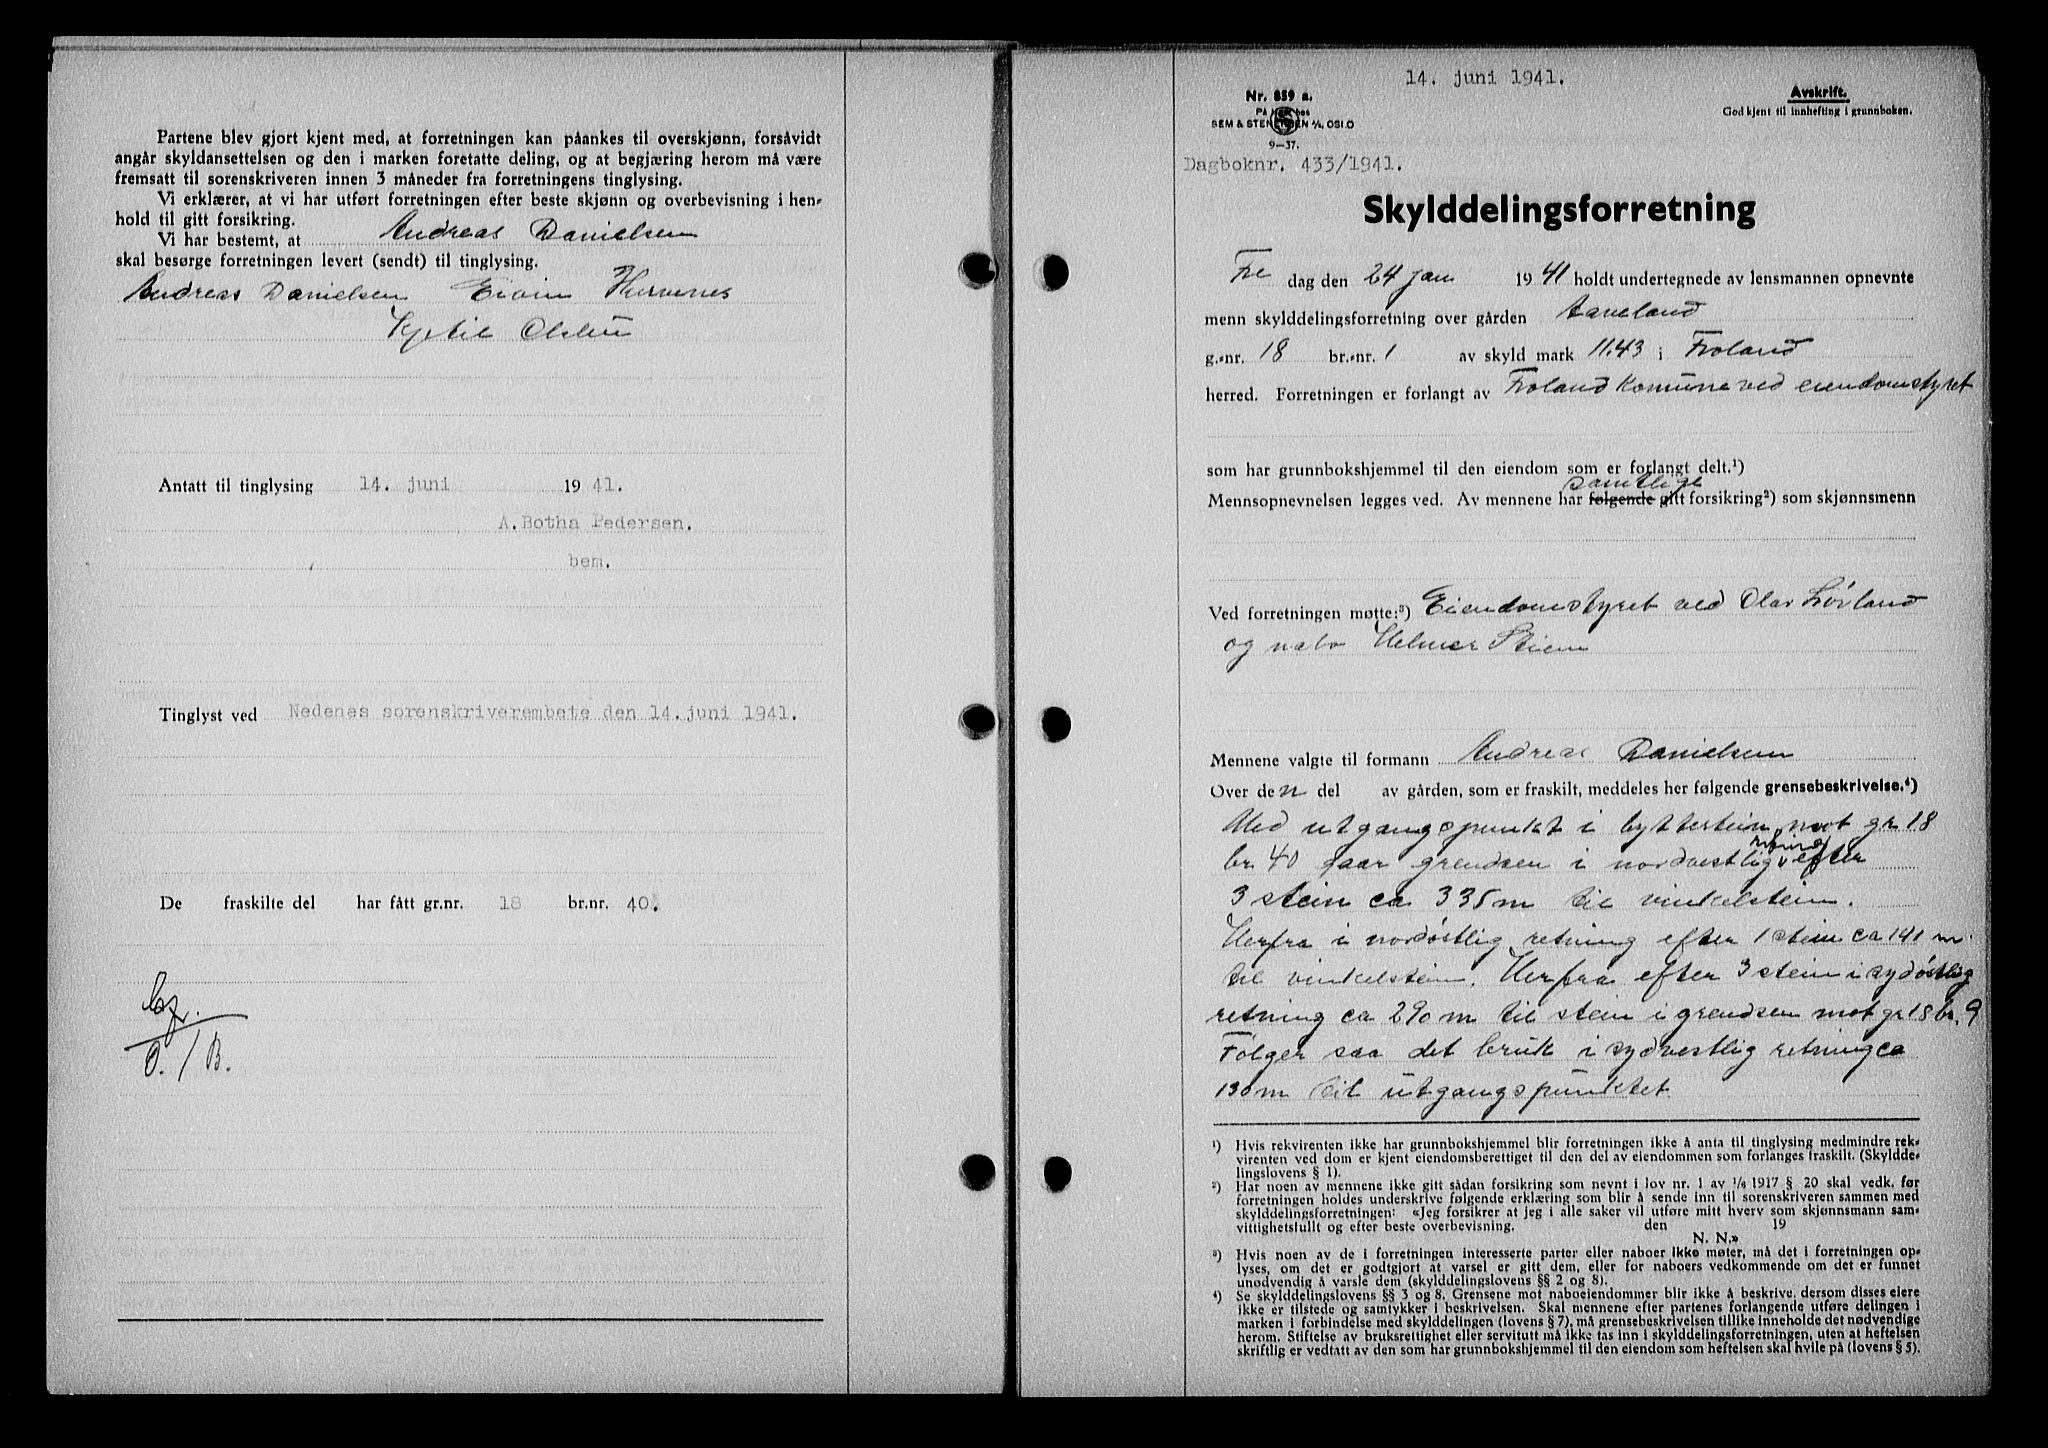 Partene blev gjort kjent med, at forretningen kan påankes til overskjønn, forsåvidt
angår skyldansettelsen og den i marken foretatte deling, og at begjæring herom må være
fremsatt til sorenskriveren innen 3 måneder fra forretningens tinglysing.
Vi erklærer, at vi har utført forretningen efter beste skjønn og overbevisning i hen-
hold til gitt forsikring.
Vi har bestemt, at Andreas Danielsen
skal besørge forretningen levert (sendt) til tinglysing.
Andreas Danielsen Eivin
Kjetil
Antatt til tinglysing 14. juni 1941.
A. Botha Pedersen.
bem.
Tinglyst ved Nedenes sorenskriverembete den 14. juni 1941.
De fraskilte del har fått gr.nr. 18 br.nr. 40.
O. / B.
14. juni 1941.
Nr. 859 a.
SEM & STENERSEN A/S, OSLO
9-37.
Avskrift.
God kjent til innhefting i grunnboken.
Dagboknr. 433/1941.
Skylddelingsforretning
Fre dag den 24 jan 1941 holdt undertegnede av lensmannen opnevnte
menn skylddelingsforretning over gården Aaveland
g.-nr. 18 br.-nr. 1 av skyld mark 11.43 i Froland
herred. Forretningen er forlangt av Froland Komune ved eiendomstyret
som har grunnbokshjemmel til den eiendom som er forlangt delt.¹)
samtlige
Mennsopnevnelsen legges ved. Av mennene har følgende gitt forsikring²) som skjønnsmenn
Ved forretningen møtte:³) Eiendomstyret ved Olav Lövland
og nabo Helmer Stiem
Mennene valgte til formann Andreas Danielsen
Over den del av gården, som er fraskilt, meddeles her følgende grensebeskrivelse.⁴)
Med utgangspunkt i byttestein mot gr 18
br. 40 gaar grendsen i nordvestlig retning efter
3 stein ca 335 m til vinkelstein.
Herfra i nordöstlig retning efter 1 stein ca 141 m.
til vinkelstein. Herfra efter 3 stein i sydöstlig
retning ca 290 m til stein i grendsen mot gr 18 br. 9
Følger saa det bruk i sydvestlig retning ca
130 m til utgangspunktet.
¹) Hvis rekvirenten ikke har grunnbokshjemmel blir forretningen ikke å anta til tinglysing medmindre rek-
virenten ved dom er kjent eiendomsberettiget til den del av eiendommen som forlanges fraskilt. (Skyldde-
lingslovens § 1).
²) Har noen av mennene ikke gitt sådan forsikring som nevnt i lov nr. 1 av 1/6 1917 § 20 skal vedk. før
forretningen holdes underskrive følgende erklæring som blir å sende inn til sorenskriveren sammen med
skylddelingsforretningen: «Jeg forsikrer at jeg i alle saker vil utføre mitt hverv som skjønnsmann sam-
vittighetsfullt og efter beste overbevisning. den 19
N. N.»
³) Hvis noen av de i forretningen interesserte parter eller naboer ikke møter, må det i forretningen op-
lyses, om det er godtgjort at varsel er gitt dem, eller for naboers vedkommende om det er funnet
unødvendig å varsle dem (skylddelingslovens §§ 2 og 8).
⁴) Se skylddelingslovens §§ 3 og 8. Grensene mot naboeiendommer blir ikke å beskrive, dersom disses eiere
ikke er tilstede og samtykker i beskrivelsen. Skal mennene efter partenes forlangende utføre delingen i
marken i forbindelse med skylddelingen (lovens § 7), må grensebeskrivelsen tillike inneholde det nødvendige
herom. Stiftelse av bruksrettighet eller servitutt må ikke tas inn i skylddelingsforretningen, uten at heftelsen
skriftlig er vedtatt av den som har grunnbokshjemmel til den eiendom som heftelsen skal hvile på (lovens § 5).